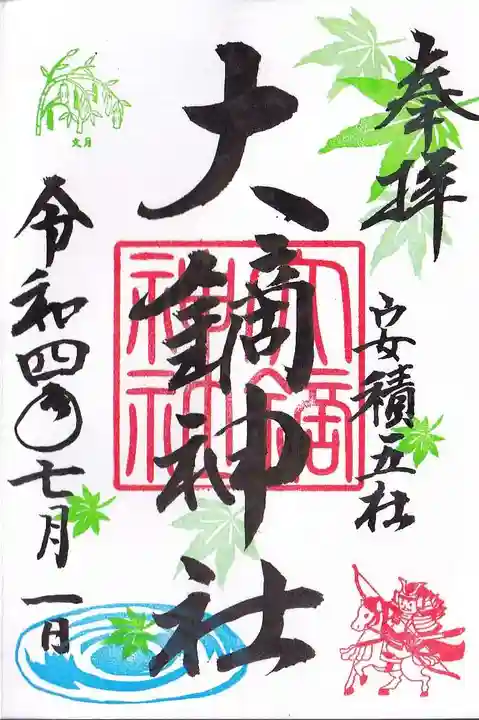 奉拝
安積五社
大鏑神社
大鏑神社
令和四年七月一日
文月